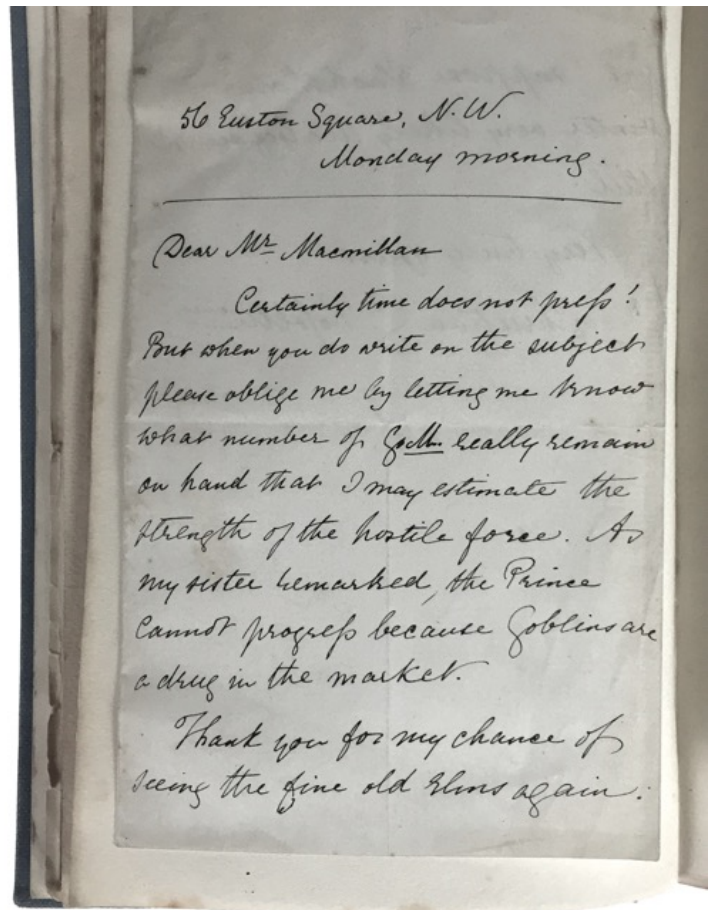 56 Euston Square, N.W.
Monday morning.
Dear Mr Macmillan
Certainly time does not press!
But when you do write on the subject
please oblige me by letting me know
what number of G.M. really remain
on hand that I may estimate the
strength of the hostile force. As
my sister remarked, the Prince
cannot progress because Goblins are
a drug in the market.
Thank you for my chance of
seeing the fine old Elms again.